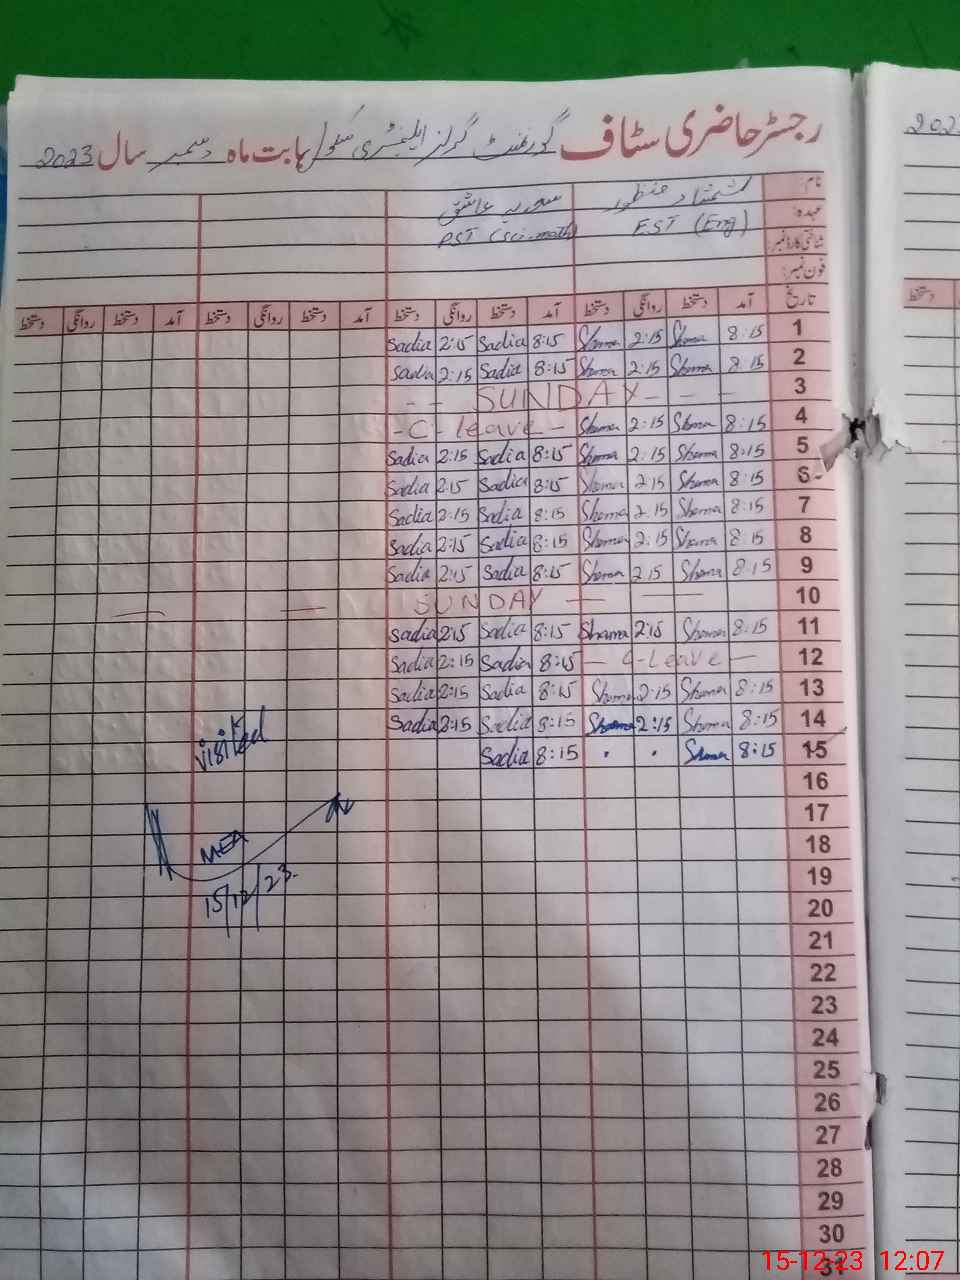 رجسٹر حاضری سٹاف گورنمنٹ گرلز ایلیمنٹری سکول بابت ماہ دسمبر سال 2023
202
نام: شمشاد منظور سعدیہ عاشق
عہدہ: EST (Eng) PST (sci.math)
شناختی کارڈ نمبر:
فون نمبر:
تاریخ آمد دستخط روانگی دستخط آمد دستخط روانگی دستخط آمد دستخط روانگی دستخط آمد دستخط روانگی دستخط
دستخط
Sadia 2:15 Sadia 8:15 Shama 2:15 Shama 8:15 1
Sadia 2:15 Sadia 8:15 Shama 2:15 Shama 8:15 2
- - SUNDAY - - - 3
- C - leave - Shama 2:15 Shama 8:15 4
Sadia 2:15 Sadia 8:15 Shama 2:15 Shama 8:15 5
Sadia 2:15 Sadia 8:15 Shama 2:15 Shama 8:15 6
Sadia 2:15 Sadia 8:15 Shama 2:15 Shama 8:15 7
Sadia 2:15 Sadia 8:15 Shama 2:15 Shama 8:15 8
Sadia 2:15 Sadia 8:15 Shama 2:15 Shama 8:15 9
— — SUNDAY — — 10
Sadia 2:15 Sadia 8:15 Shama 2:15 Shama 8:15 11
Sadia 2:15 Sadia 8:15 — C-Leave — 12
Sadia 2:15 Sadia 8:15 Shama 2:15 Shama 8:15 13
Sadia 2:15 Sadia 8:15 Shama 2:15 Shama 8:15 14
Sadia 8:15 . . Shama 8:15 15
visited
MEA
15/12/23.
16
17
18
19
20
21
22
23
24
25
26
27
28
29
30
31
15-12-23 12:07